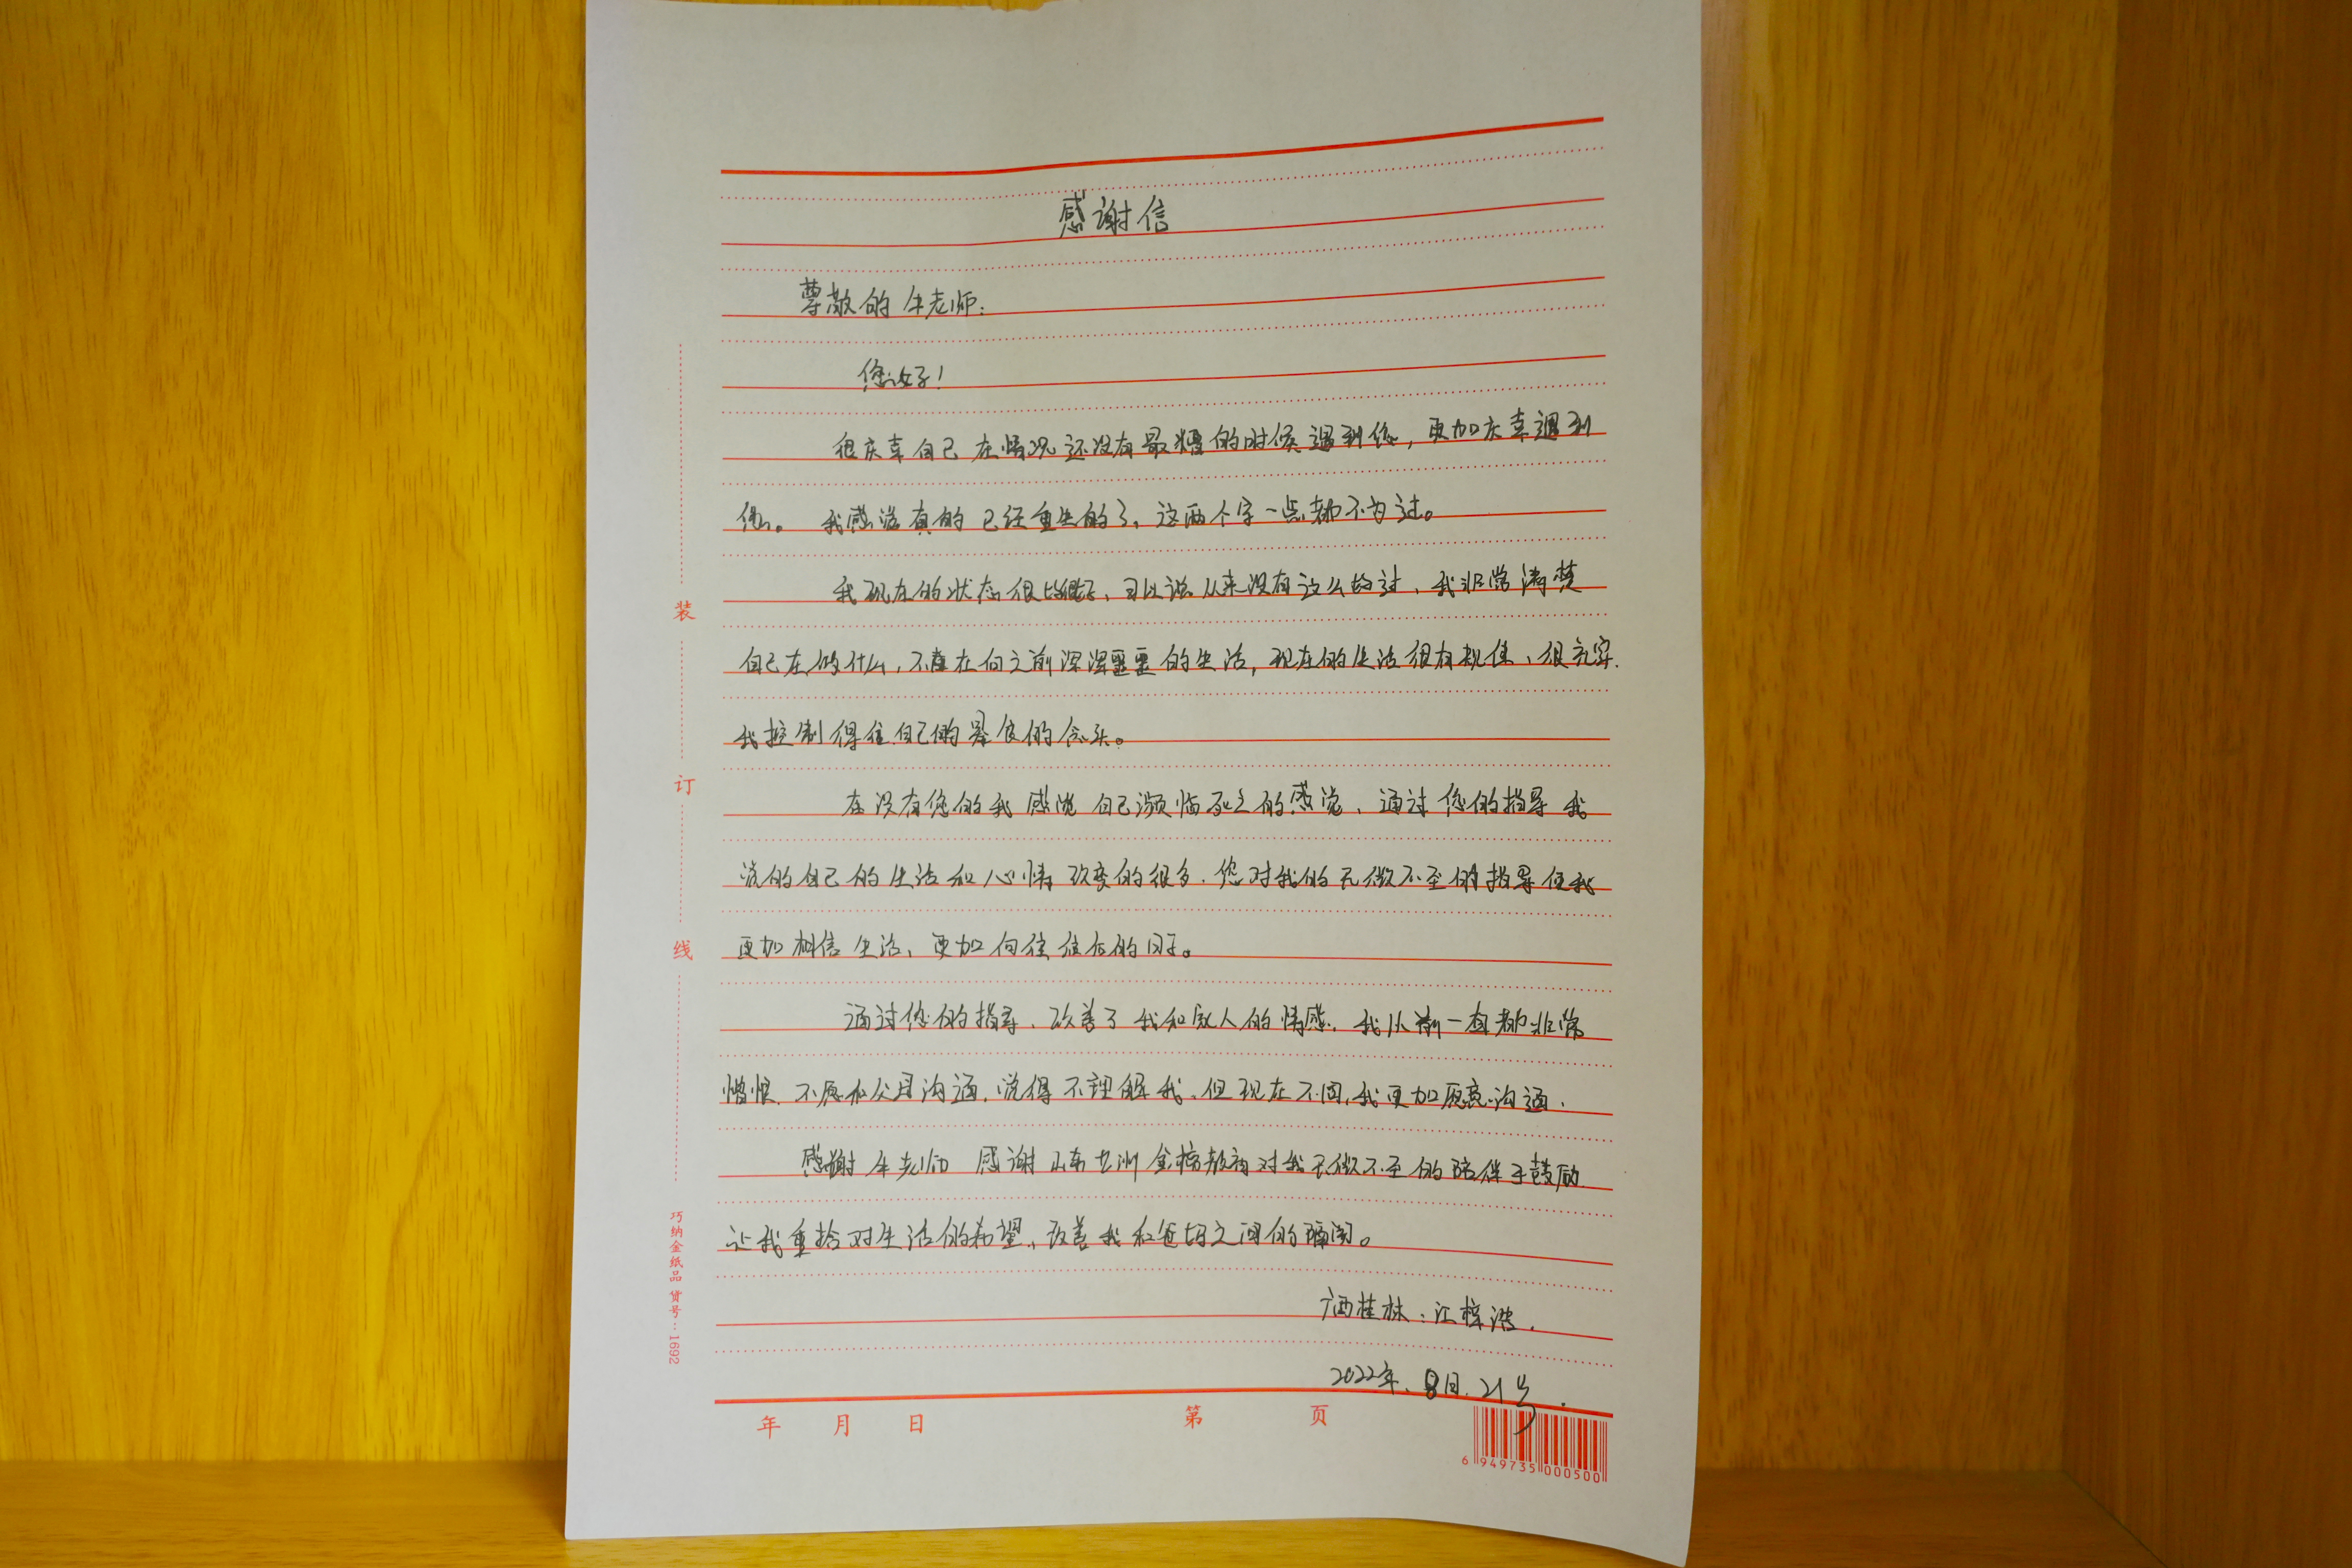 感谢信
尊敬的牛老师:
您好!
很庆幸自己在情况还没有最糟的时候遇到您,更加庆幸遇到
您。我感觉真的已经重生的了,这两个字一点都不为过。
我现在的状态很好、可以说从来没有这么好过、我非常清楚
自己在做什么,不在向之前浑浑噩噩的生活,现在的生活很有规律、很充实.
我控制得住自己的暴食的念头。
在没有您的我感觉自己濒临死亡的感觉、通过您的指导我
觉的自己的生活和心情改变的很多.您对我的无微不至的指导使我
更加相信生活、更加向往往后的日子。
通过您的指导、改善了我和家人的情感.我从前一直都非常
憎恨.不愿和父母沟通.觉得不理解我.但现在不同,我更加愿意沟通.
感谢牛老师 感谢山东 对我无微不至的陪伴于鼓励
让我重拾对生活的希望、改善我和爸妈之间的隔阂。
广西桂林:江梓
2022年.8月.21号.
装
订
线
巧纳金纸品 货号:1692
年 月 日 第 页
6 949735 000500